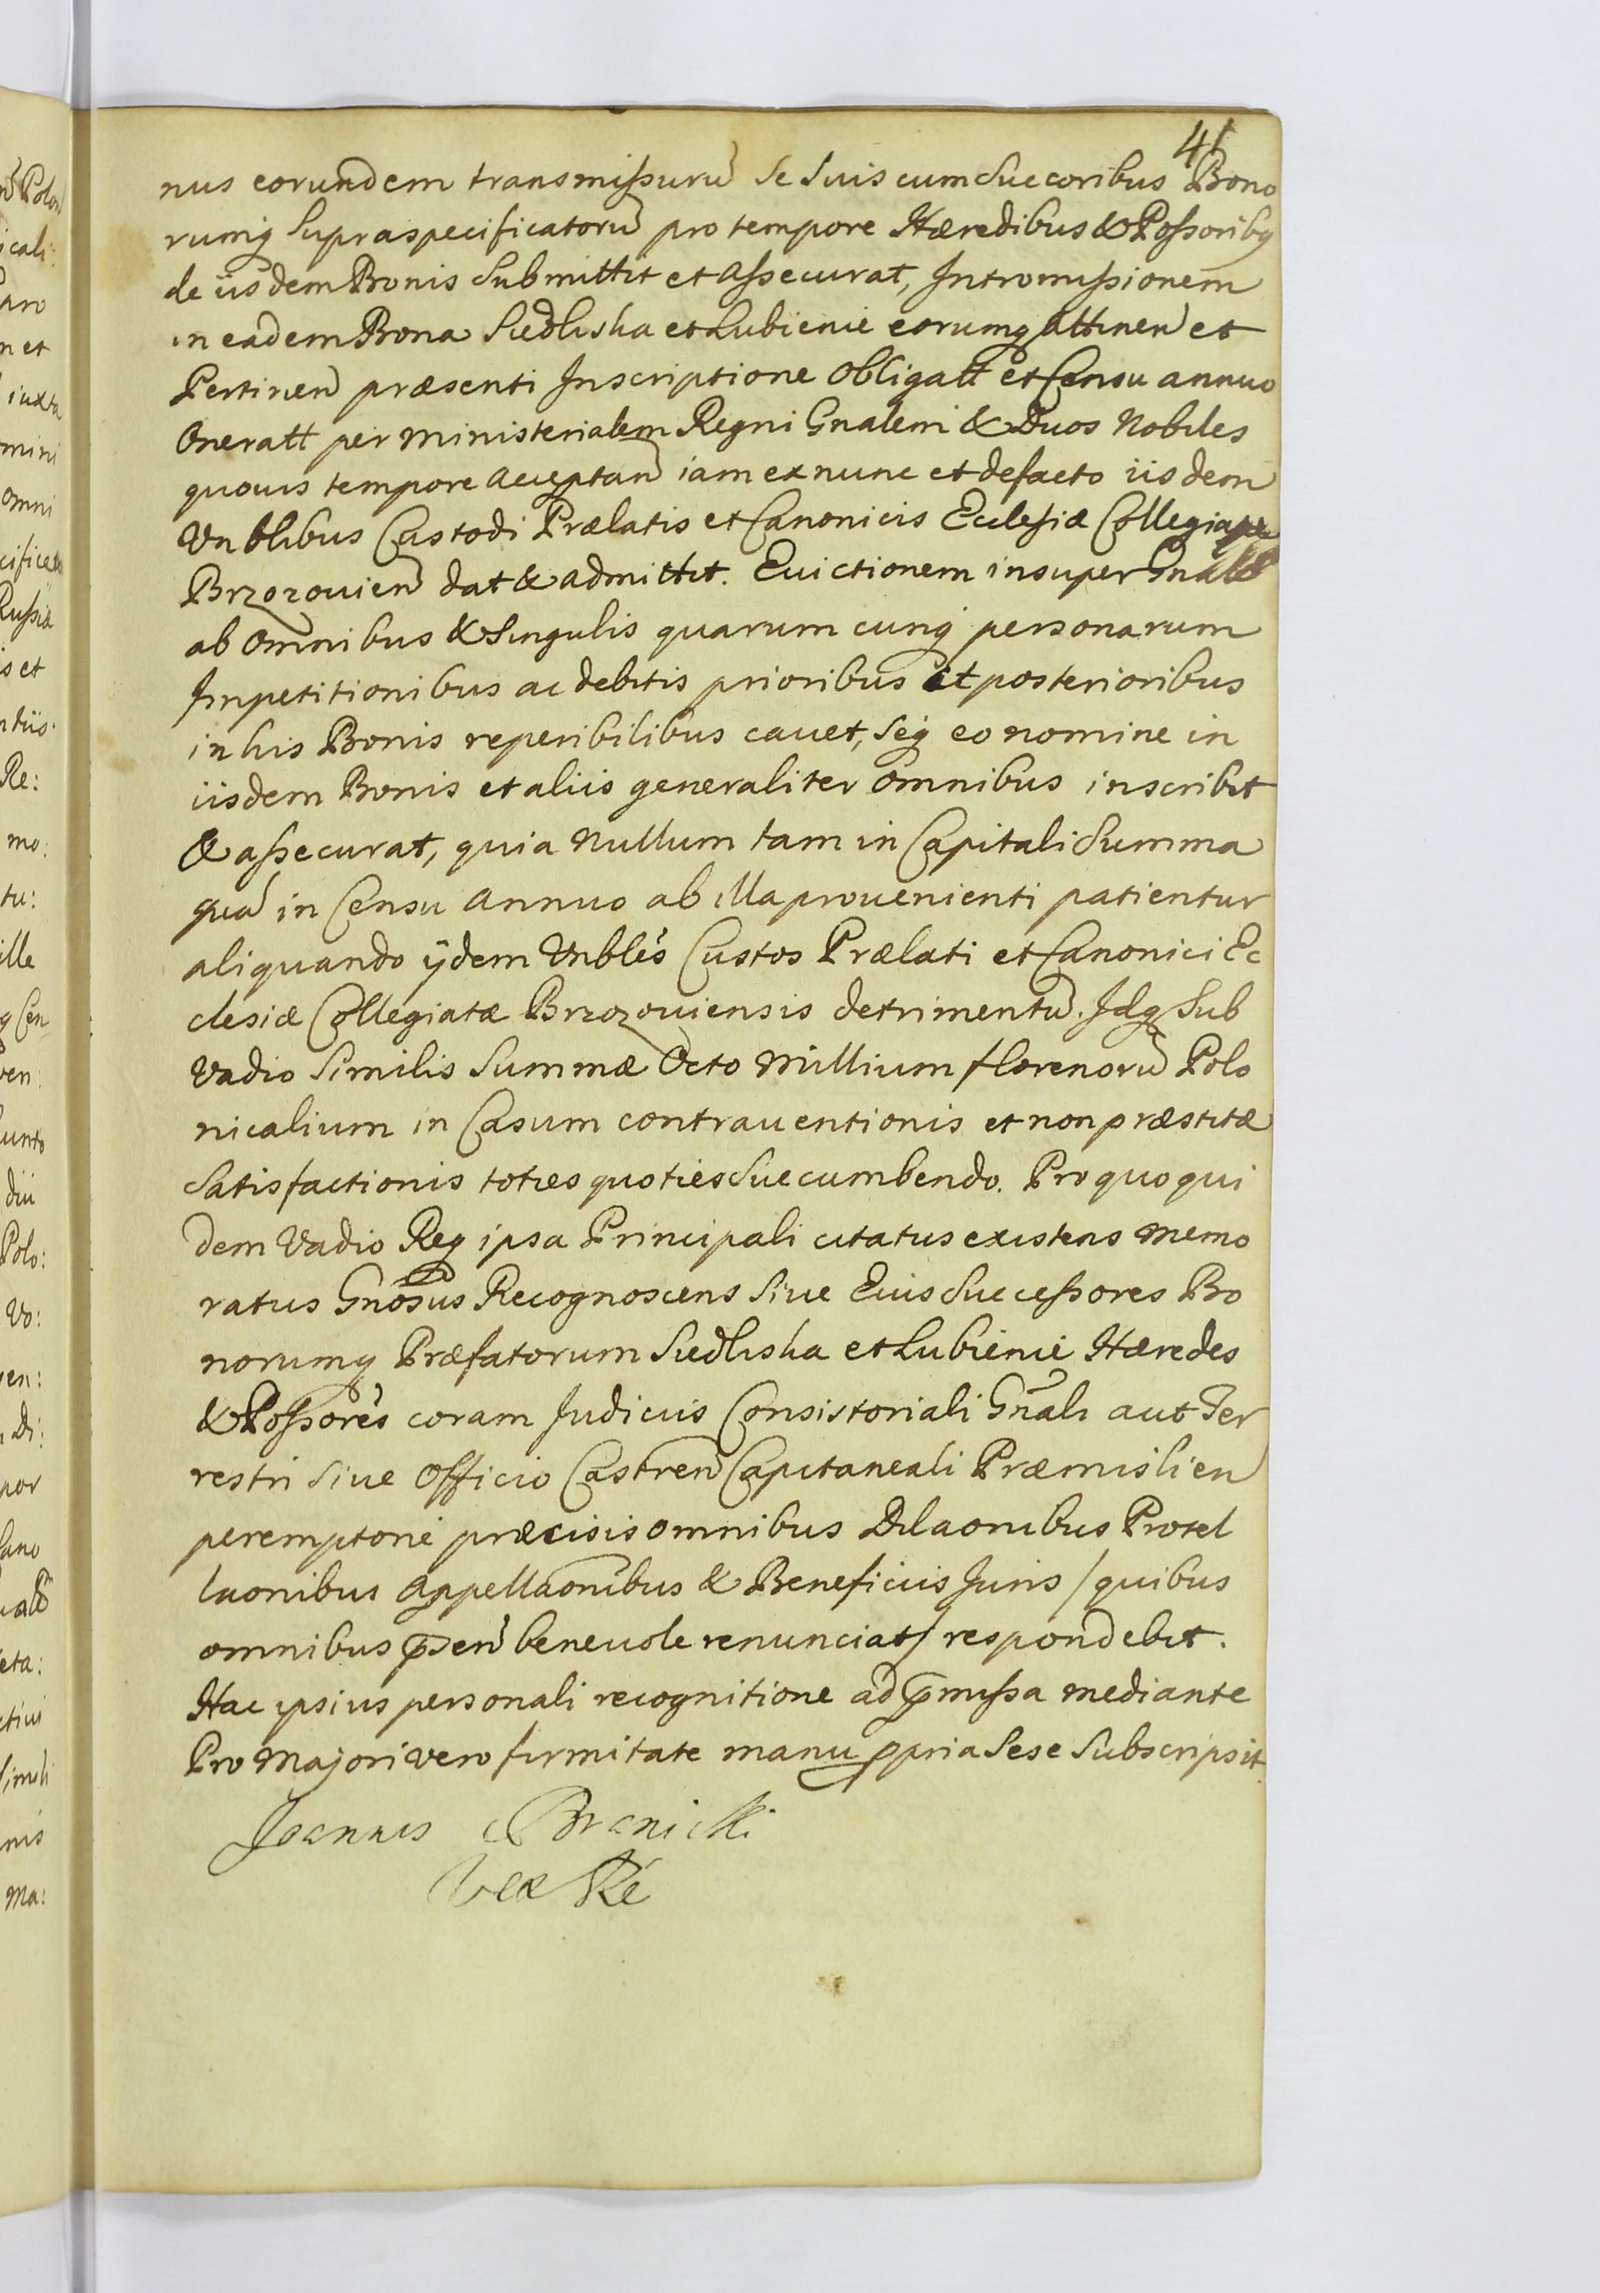 41
nus eorundem transmissurũ se suis cum succoribus Bono
rumq̃ supraspecificatorũ pro tempore Hæredibus & Possoribq
de iisdem Bonis submittit et assecurat, Intromissionem
in eadem Bona Siedliska et Lubienie eorumq̃ attineñ et
Pertineñ præsenti Inscriptione obligatt et Censu annuo
Oneratt per ministerialem Regni Gnalem & Duos Nobiles
quovis tempore acceptañ iam ex nunc et de facto iisdem
Vnblibus Custodi Prælatis et Canonicis Ecclesiæ Collegiatæ
Brzozouieñ dat & admittit. Euictionem insuper Gnalē
ab omnibus & singulis quarum cunq̃ personarum
Impetitionibus ac debitis prioribus et posterioribus
in his Bonis reperibilibus cauet, seq̃ eo nomine in
iisdem Bonis et aliis generaliter omnibus inscribit
& assecurat, quia nullum tam in Capitali Summa
quã in Censu annuo ab illa prouenienti patientur
aliquando ÿdem Vnblēs Custos Prælati et Canonici Ec
clesiæ Collegiatæ Brzozouiensis detrimentũ. Idq̃ sub
Vadio similis summæ Octo Millium florenorũ Polo
nicalium in Casum contrauentionis et non præstitæ
satisfactionis toties quoties succumbendo. Pro quo qui
dem Vadio Req̃ ipsa Principali citatus existens memo
ratus Gnõsus Recognoscens siue Eius Successores Bo
norumq̃ Præfatorum Siedliska et Lubienie Hæredes
& Possorēs coram Judiciis Consistoriali Gñali aut Ter
restri siue Officio Castreñ Capitaneali Præmislieñ
peremptorie præcisis omnibus Dilaonibus Protel
laonibus Appellaonibus & Beneficiis Juris /quibus
omnibus p̃señ beneuole renunciat/ respondebit.
Hac ipsius personali recognitione ad p̃missa mediante
Pro Majori vero firmitate manu ppria sese subscripsit.
Joannes Branicki